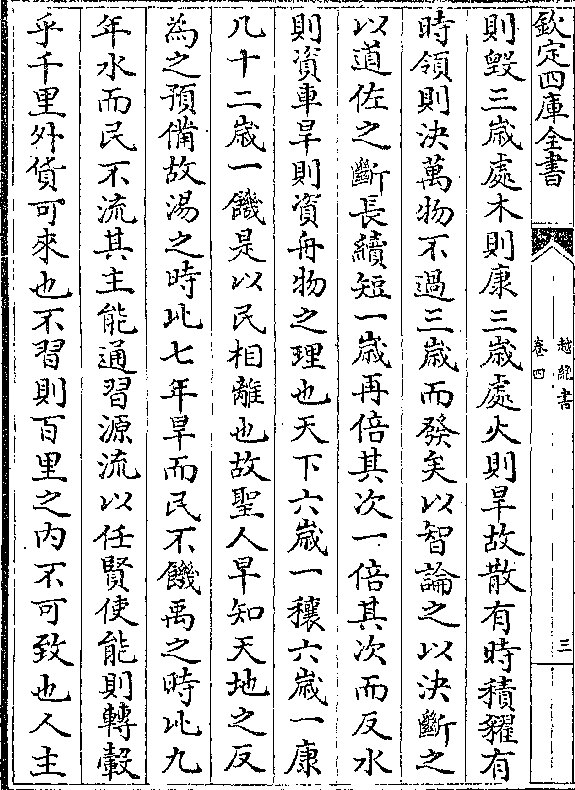 欽定四庫全書
越絶書
卷四
三
則毀三嵗處木則康三嵗處火則旱故散有時積糴有
時領則決萬物不過三嵗而發矣以智論之以決斷之
以道佐之斷長續短一嵗再倍其次一倍其次而反水
則資車旱則資舟物之理也天下六嵗一穰六嵗一康
凡十二嵗一饑是以民相離也故聖人早知天地之反
為之預備故湯之時比七年旱而民不饑禹之時比九
年水而民不流其主能通習源流以任賢使能則轉轂
乎千里外貨可來也不習則百里之内不可致也人主